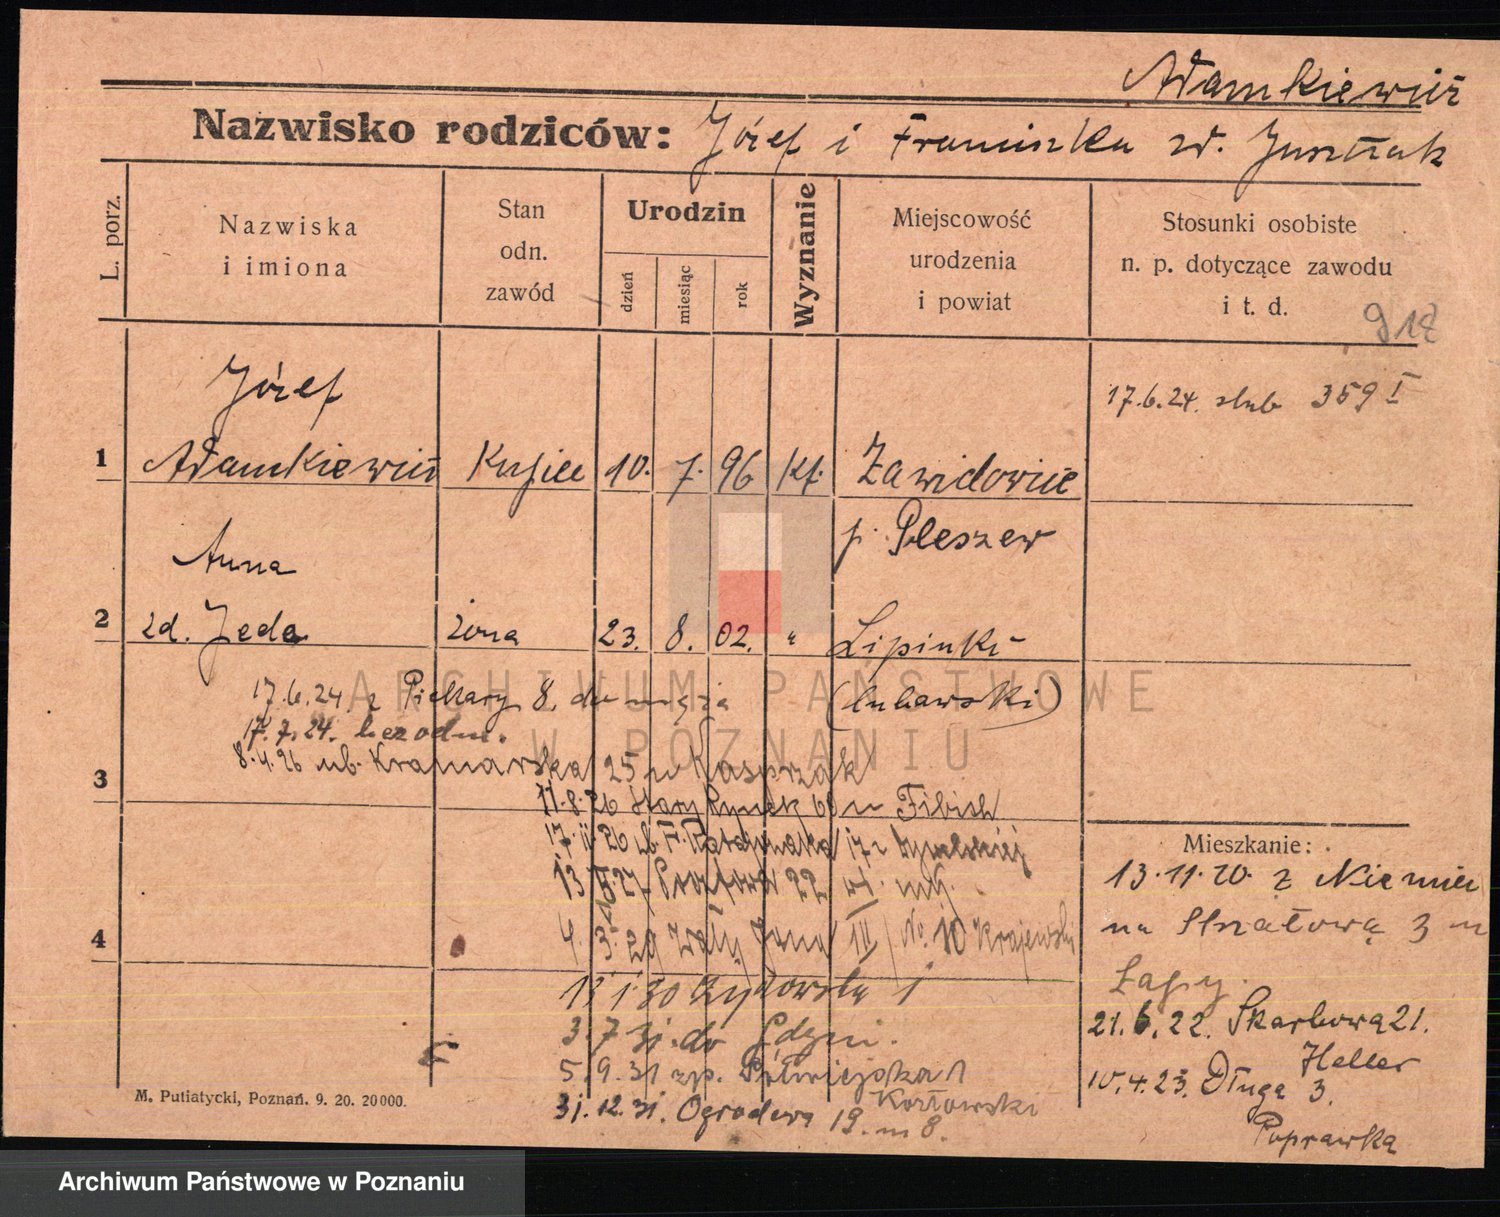 Adamkiewicz
Nazwisko rodziców: Józef i Franciszka zd. Jusztak
L. porz.
Nazwiska i imiona
Stan odn. zawód
Urodzin
dzień
miesiąc
rok
Wyznanie
Miejscowość urodzenia i powiat
Stosunki osobiste n. p. dotyczące zawodu i t. d.
918
17.6.24. slub 359 I
Józef
1 Adamkiewicz Kupiec 10. 7. 96 Kt. Zawidowice
p. Pleszew
Anna
2 zd. Jeda żona 23. 8. 02. " Lipinki
(lubawski)
17.6.24 z Piekary 8. do męża
17.7.24. bez odm.
8.4.26 ub. Kramarska 25 u Kasprzak
3
11.8.26 Stary Rynek 60 u Fibich
17.11.26 F. Ratajczaka 17
13 27 Pocztowa 22
4
4. 3. 29 No. 10 Krajewski
13 1 30 Żydowska 1
3. 7 31. do Gdyni.
5. 9. 31 zp. Półwiejska 1
Kozłowski
31. 12. 31. Ogrodowa 19. m 8.
Mieszkanie:
13.11.20. z Niemiec
na Sznatową 3 u
Łapy.
21.6.22. Skarbowa 21.
Heller
10.4.23. Długa 3.
Poprawka
M. Putiatycki, Poznań. 9. 20. 20000.
ARCHIWUM PAŃSTWOWE
W POZNANIU
Archiwum Państwowe w Poznaniu